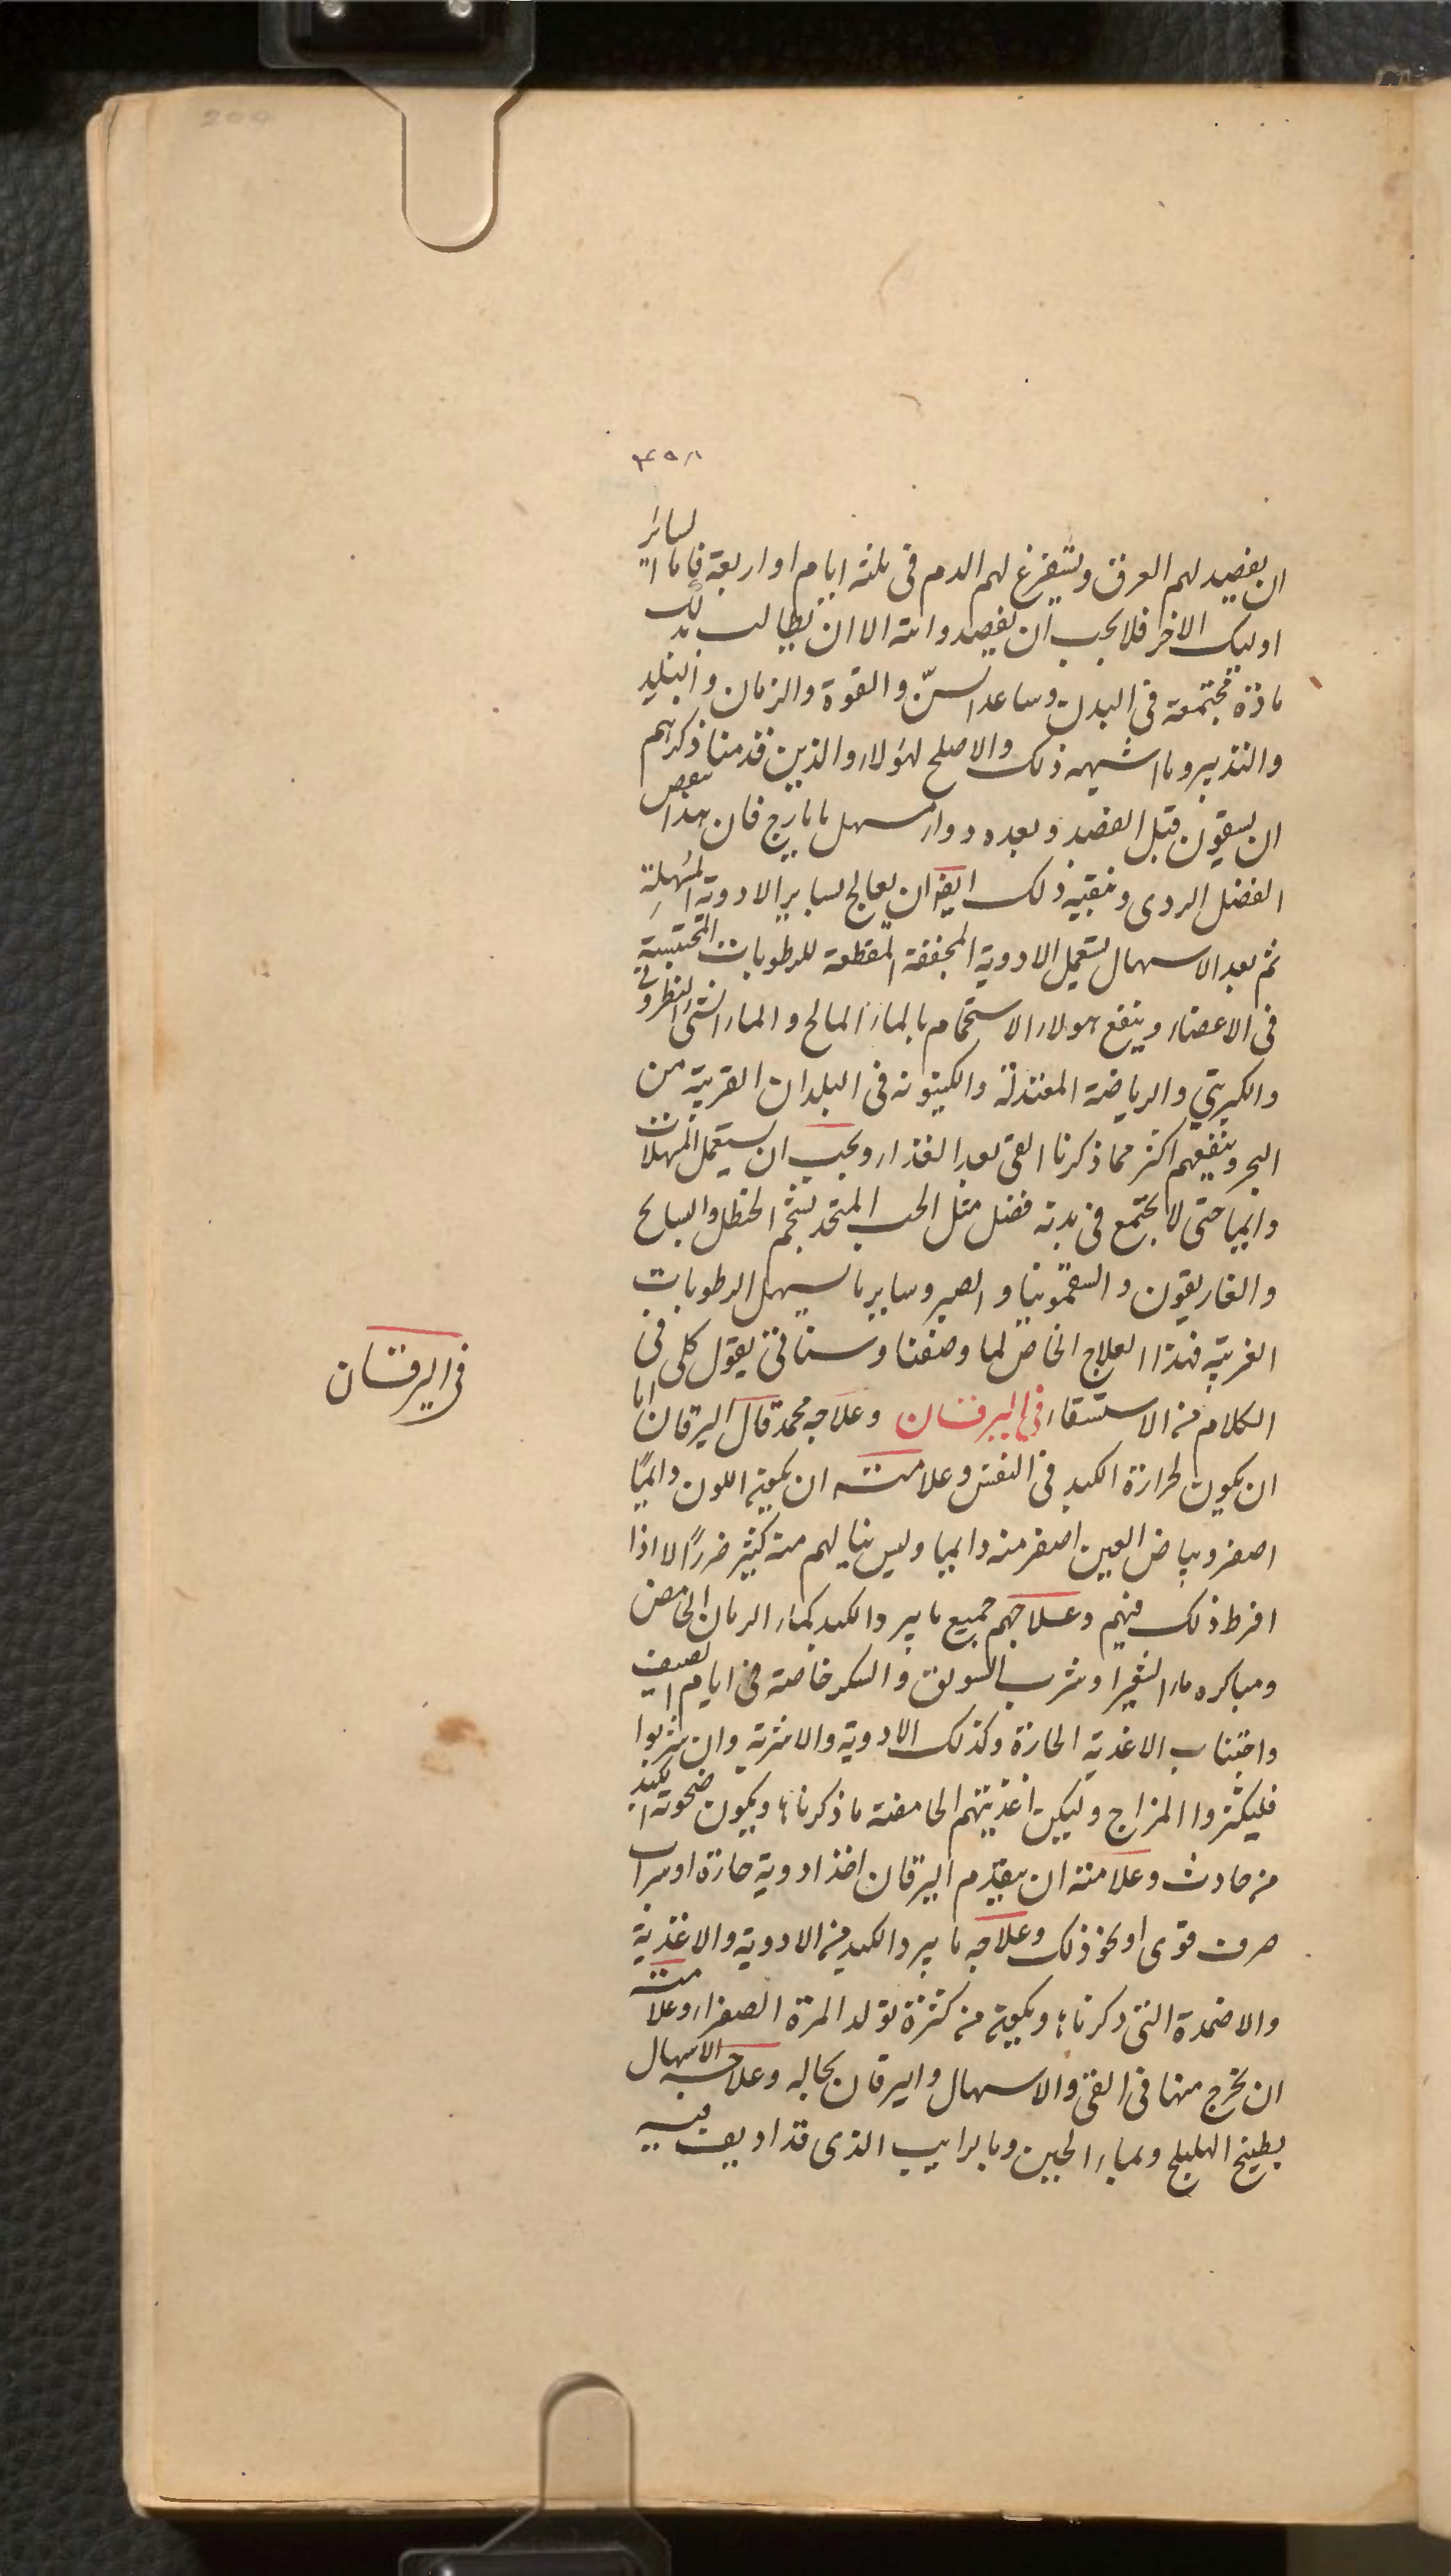 ٣٥٨
ان يفصد لهم العرق ويستفرغ لهم الدم فى ثلثة ايام او اربعة فاما لسائر
اوليك الاخر فلا يجب ان يفصدوا البتة الا ان تطالب بذلك
مادة مجتمعة فى البدن وساعد السنّ والقوة والزمان والبلد
والتدبير وما اشبه ذلك والاصلح لهؤلاء والذين قدمنا ذكرهم
ان يسقون قبل الفصد وبعده دواء مسهل بايارج فان هذا ينقص
الفضل الردى وينقيه ذلك ايضا ان يعالج بساير الادوية المسهلة
ثم بعد الاسهال تستعمل الادوية المجففة المقطعة للرطوبات المحتبسة
فى الاعضاء وينفع هولاء الاستحمام بالماء المالح والماء الشبى النطرونى
والكبريتي والرياضة المعتدلة والكينونه فى البلدان القريبة من
البحر وينفعهم اكثر مما ذكرنا القى بعد الغذاء ويجب ان يستعمل المسهلات
دايما حتى لا يجتمع فى بدنه فضل مثل الحب المتخذ بشحم الحنظل والسايح
والغاريقون والسقمونيا والصبر وساير ما يسهل الرطوبات
الغريبة فهذا العلاج الخاص لما وصفنا وسناتى بقول كلى فى
الكلام من الاستسقاء فى اليرقان وعلاجه محمد قال اليرقان اما
ان يكون لحرارة الكبد فى النفس وعلامته ان يكون اللون دايمًا
اصفر وبياض العين اصفر منه دايما وليس ينالهم منه كثير ضررًا لا اذا
افرط ذلك فيهم وعلاجهم جميع ما يبرد الكبد كماء الرمان الحامض
ومباكره ماء الشعير او شرب السويق والسكر خاصة فى ايام الصيف
واجتناب الاغذية الحارة وكذلك الادوية والاشربة وان شربوا
فليكثروا المزاج وليكن اغذيتهم الحامضة ما ذكرنا؛ ويكون سخونة الكبد
من حادث وعلامته ان يتقدم اليرقان اخذ ادوية حارة او شراب
صرف قوى او نحو ذلك وعلاجه ما يبرد الكبد من الادوية والاغذية
والاضمدة التى ذكرنا؛ ويكون من كثرة تولد المرة الصفراء وعلامته
ان يخرج منها فى القئ والاسهال واليرقان بحاله وعلاجه الاسهال
بطبيخ الهليلج وبماء الجبن وبالرايب الذى قد اديف فيه
فى اليرقان